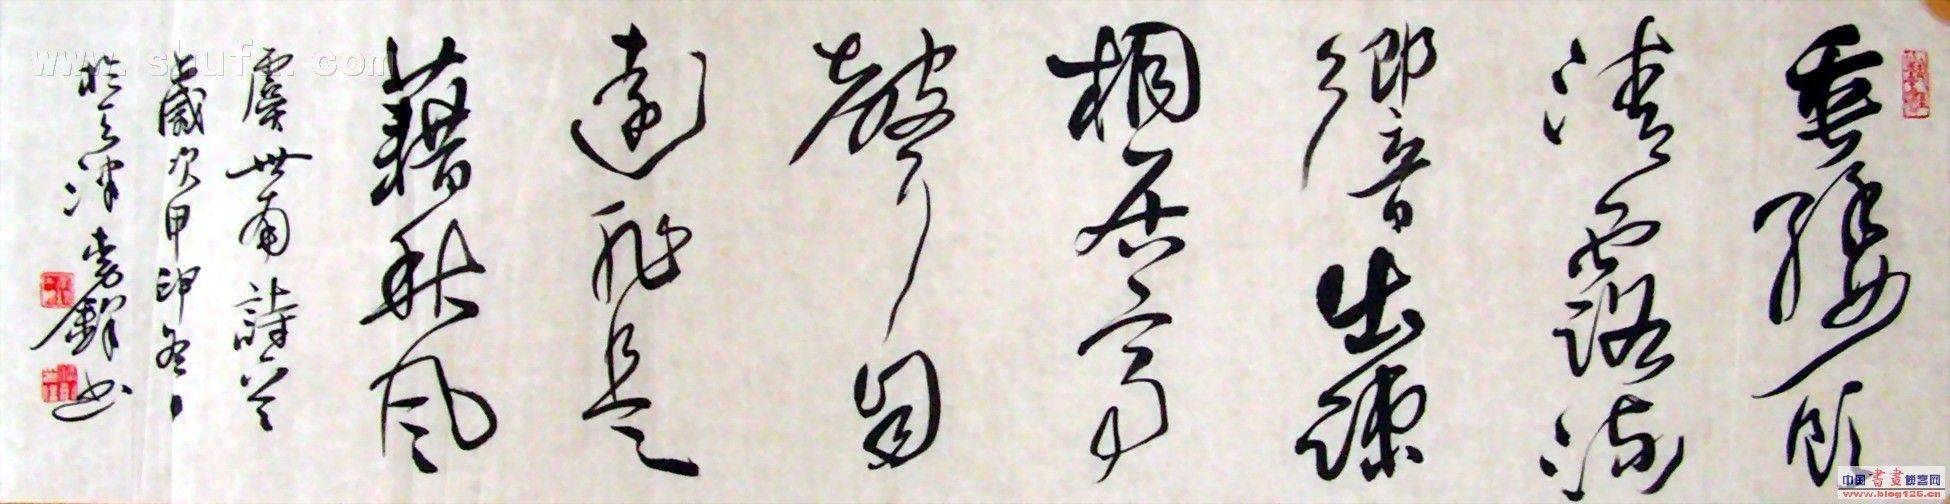 垂緌飲
清露流
響出疎
桐居高
聲自
遠非是
藉秋風
虞世南詩
歲次甲申冬月
於天津 書
www.shufa.com
中国書畫博客网
www.blog126.cn